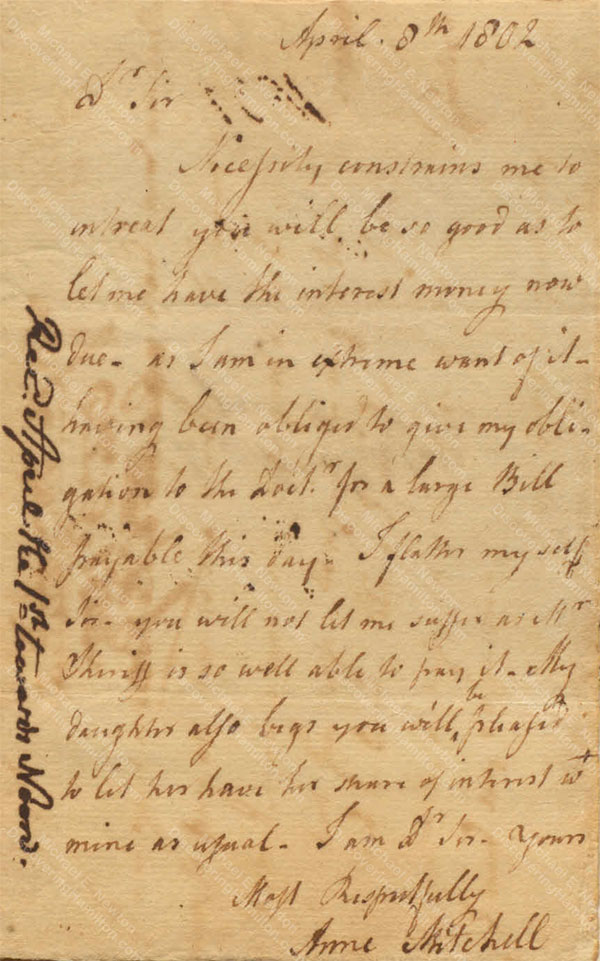 April. 8th 1802
Dr Sir
Necessity constrains me to
intreat you will be so good as to
let me have the interest money now
due - as I am in extreme want of it -
having been obliged to give my obli-
gation to the Doctr. for a large Bill
payable this day - I flatter my self
Sir - you will not let me suffer as Mr
is so well able to pay it - My
daughter also begs you will be pleased
to let her have her share of interest wt
mine as usual - I am Dr Sir - Yours
Most Respectfully
Anne Mitchell
Recd. April the 1st towards Noon.
Michael E. Newton
DiscoveringHamilton.com